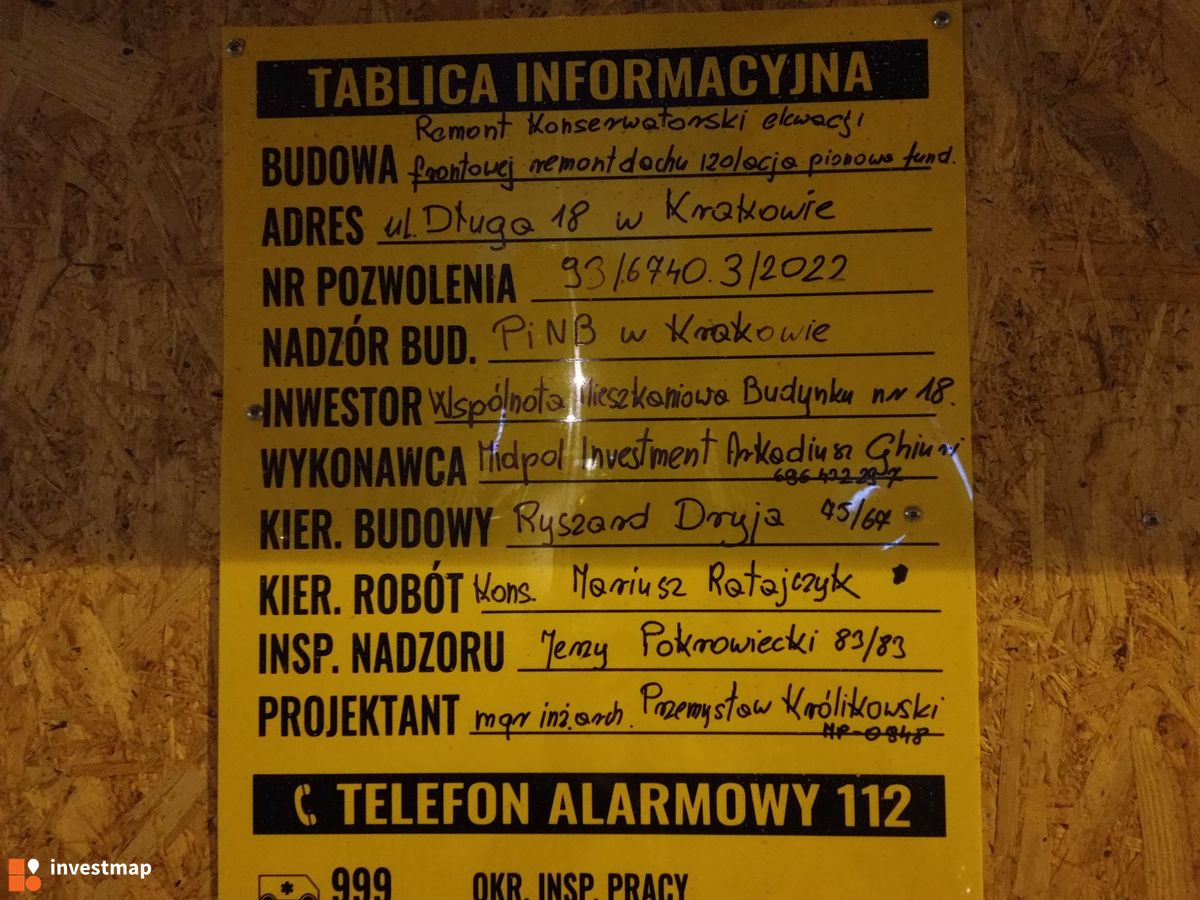 TABLICA INFORMACYJNA
Remont Konserwatorski elewacji
BUDOWA frontowej remont dachu izolacja pionowa fund.
ADRES ul. Długa 18 w Krakowie
NR POZWOLENIA 93/6740.3/2022
NADZÓR BUD. PiNB w Krakowie
INWESTOR Wspólnota Mieszkaniowa Budynku nr 18.
WYKONAWCA Midpol Investment Arkadiusz
KIER. BUDOWY Ryszard Dryja 45/67
KIER. ROBÓT Kons. Mariusz Ratajczyk
INSP. NADZORU Jerzy Pokrowiecki 83/83
PROJEKTANT mgr inż. arch. Przemysław Królikowski
MP-0948
TELEFON ALARMOWY 112
999 OKR. INSP. PRACY
investmap